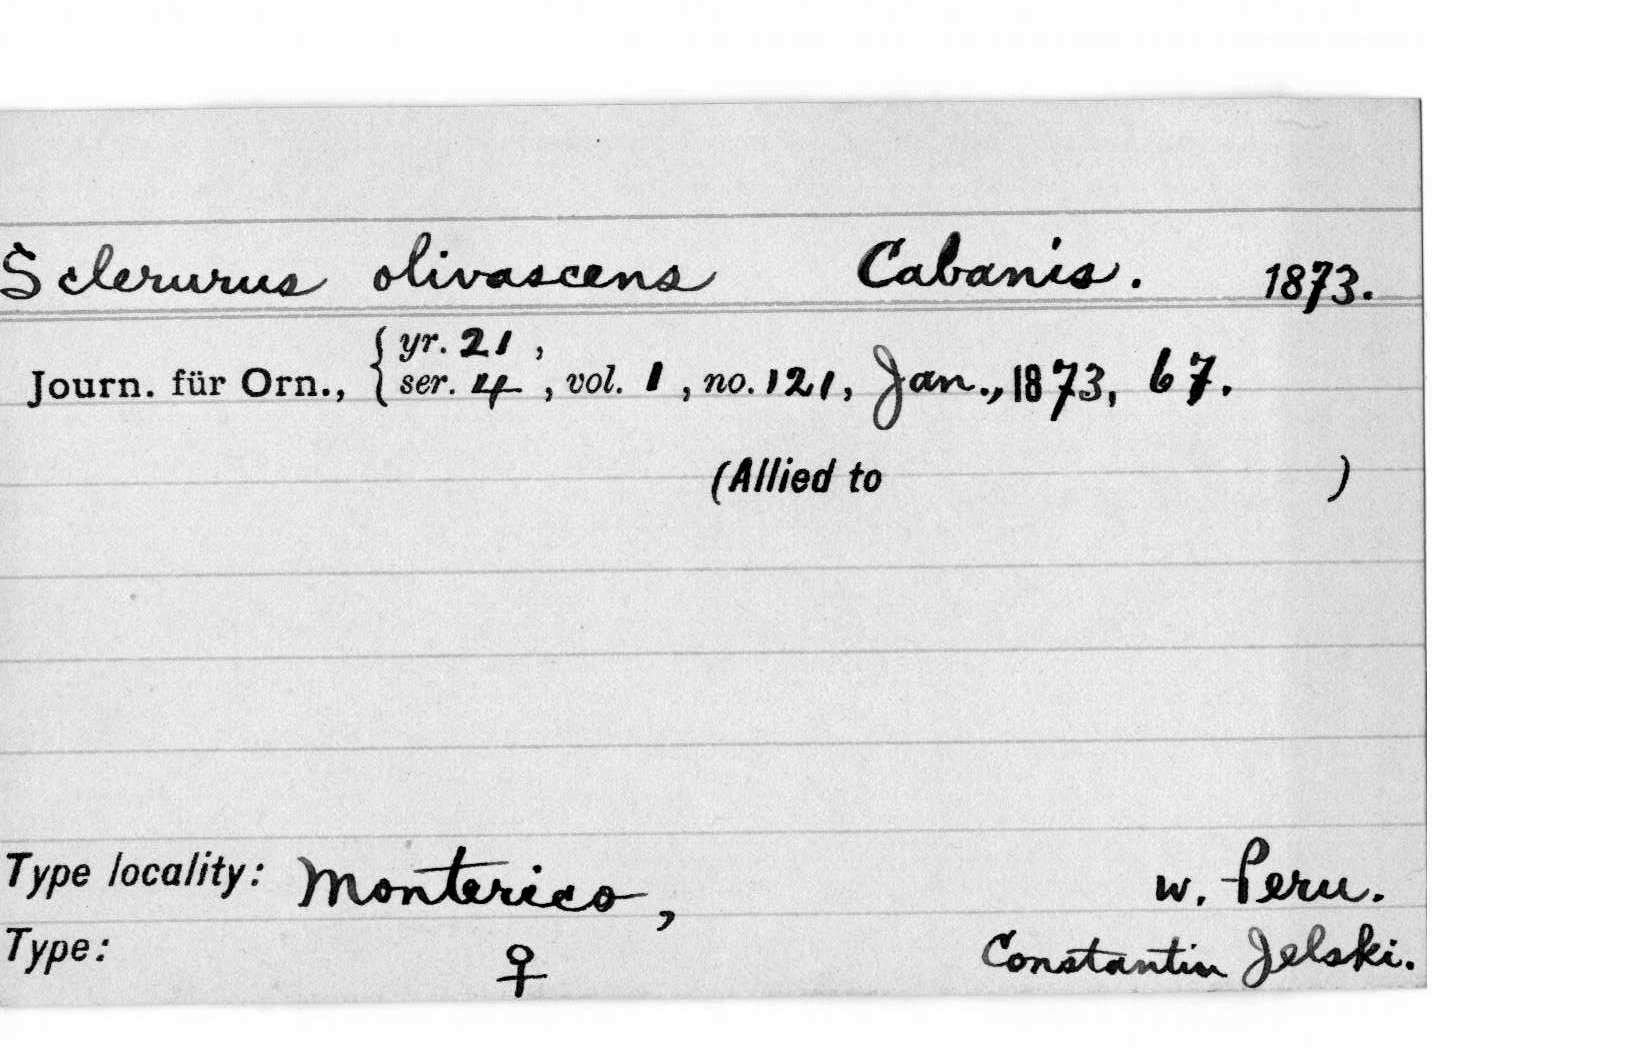 Sclerurus olivascens Cabanis. 1873.
Journ. für Orn., { yr. 21 ,
ser. 4 , vol. 1 , no. 121, Jan., 1873, 67.
(Allied to )
Type locality: Monterico, w. Peru.
Type: ♀ Constantin Jelski.